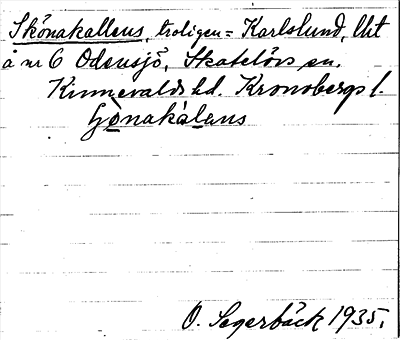 Skönakallens, troligen = Karlslund, lht
å nr 6 Odensjö, Skatelövs sn.
Kinnevalds hd. Kronobergs l.
ʃònakálens
O. Segerbäck 1935.